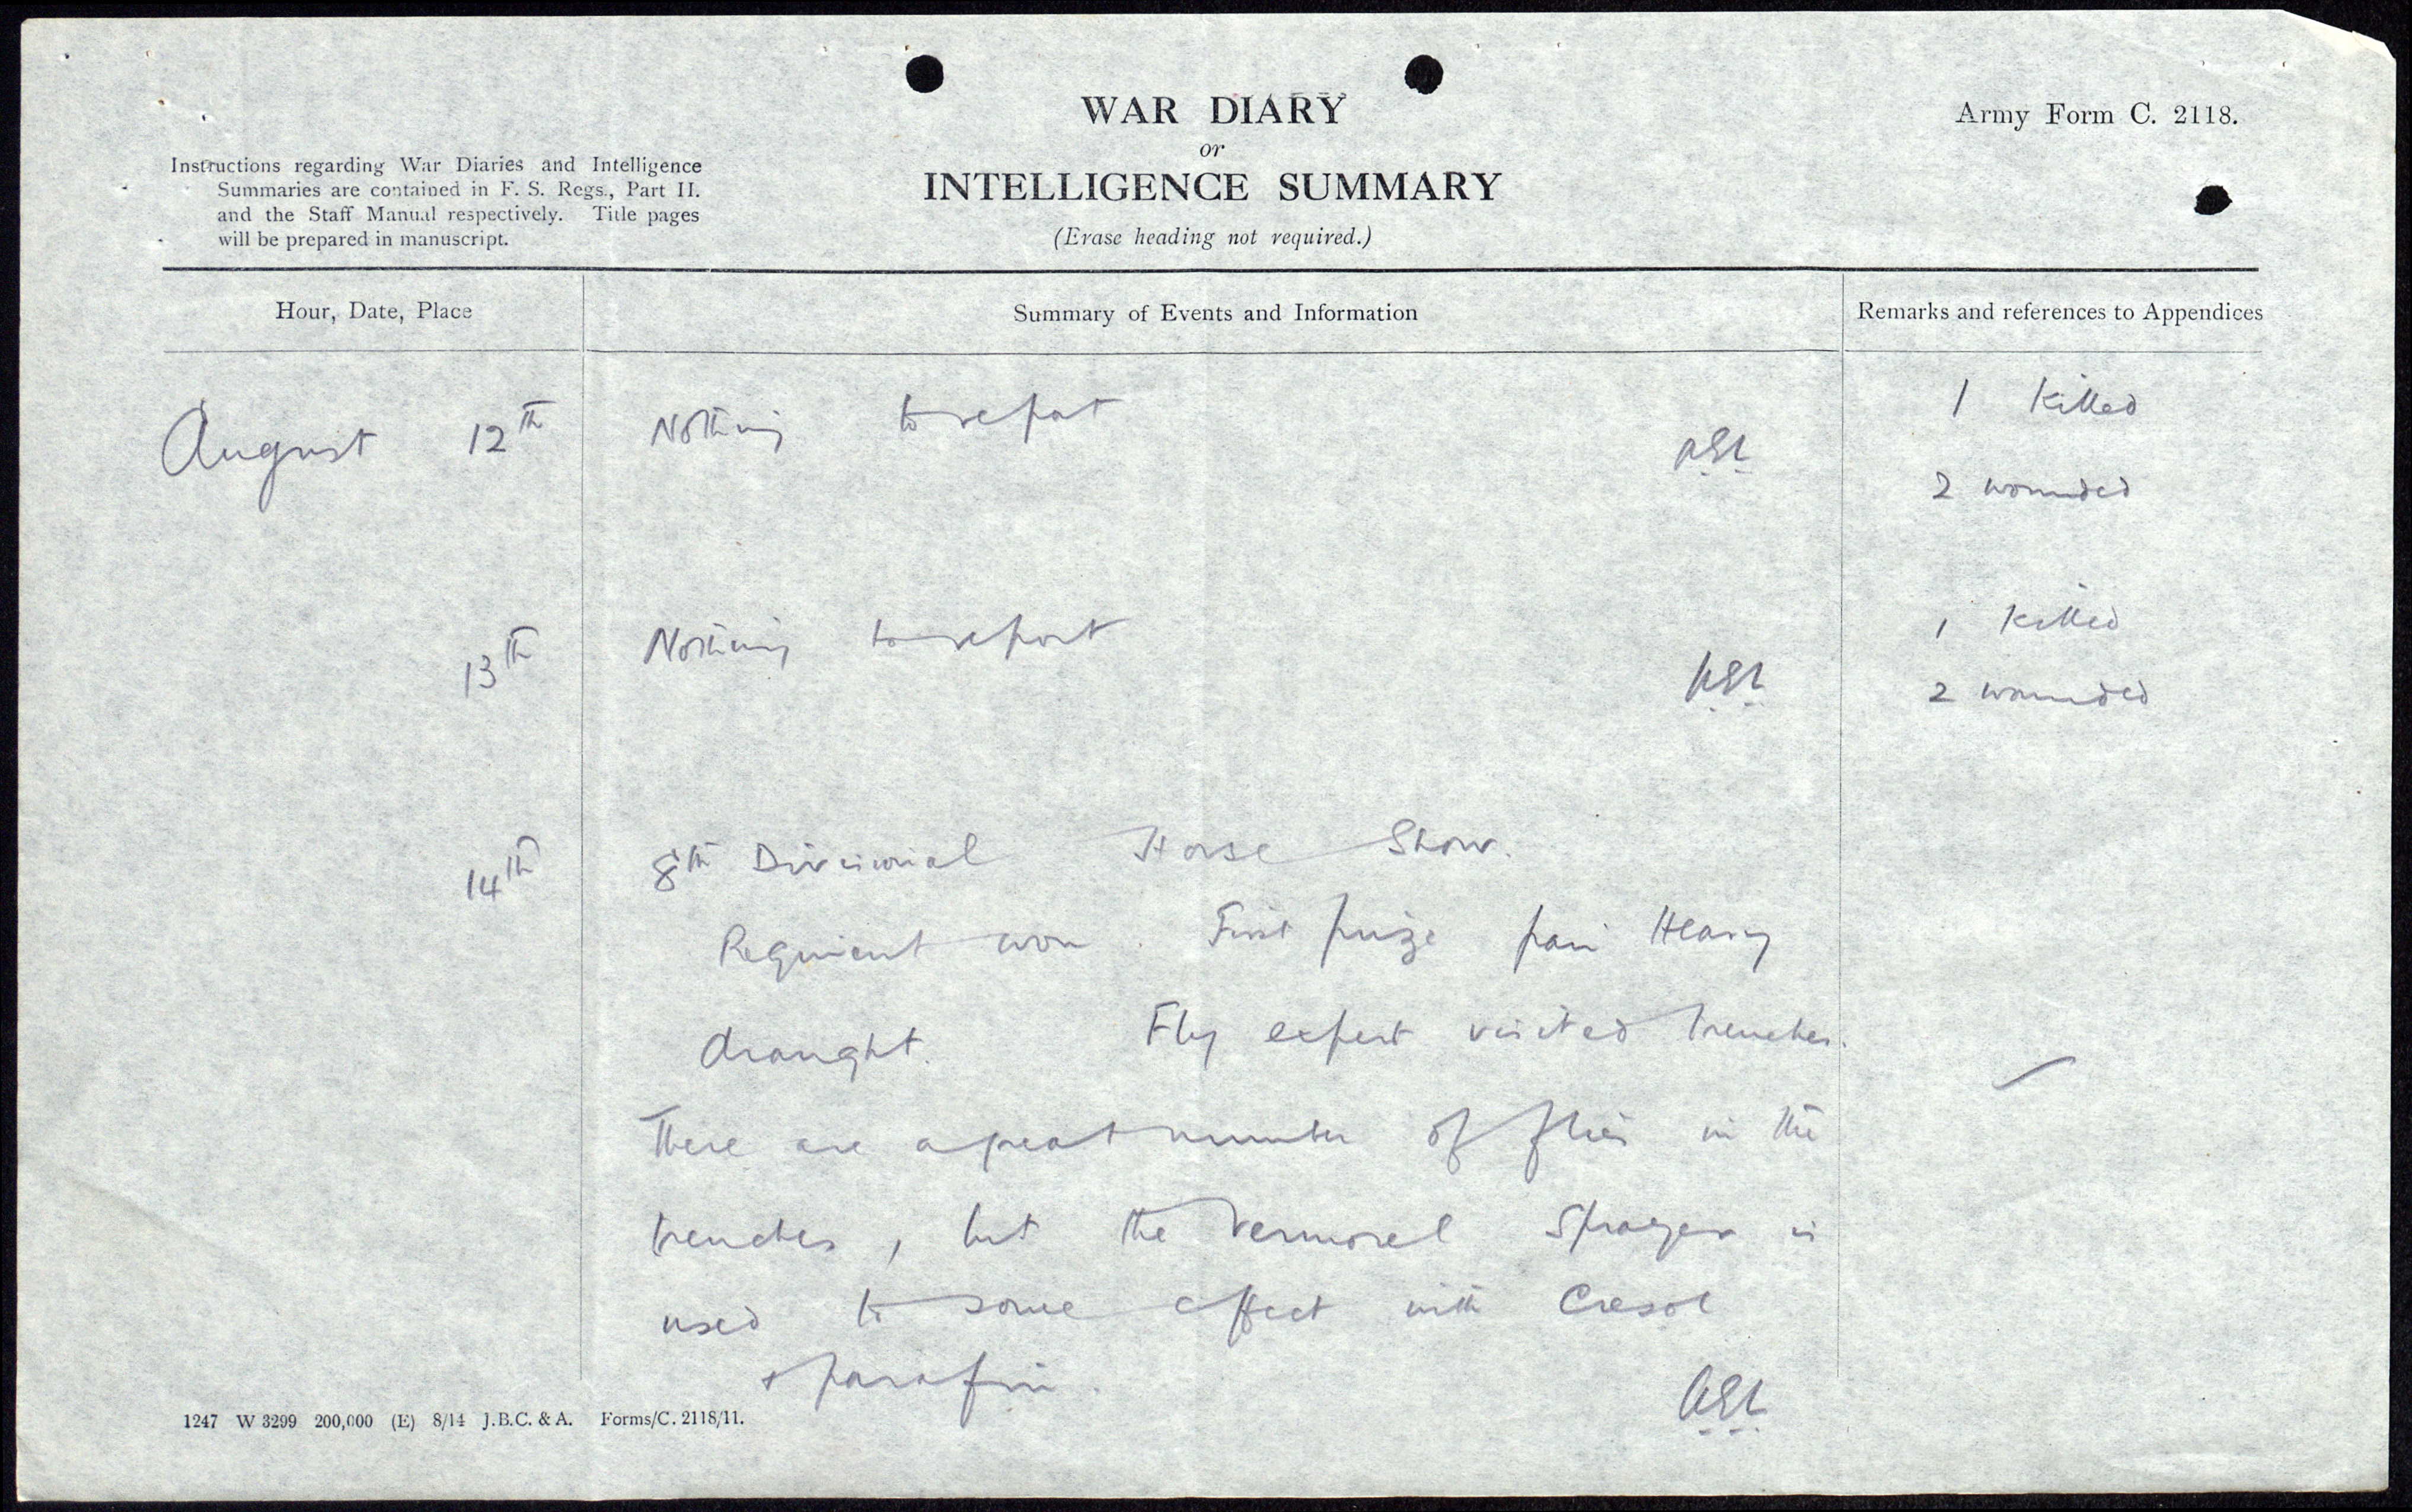 WAR DIARY
or
INTELLIGENCE SUMMARY
(Erase heading not required.)
Army Form C. 2118.
Instructions regarding War Diaries and Intelligence
Summaries are contained in F. S. Regs., Part II.
and the Staff Manual respectively. Title pages
will be prepared in manuscript.
Hour, Date, Place
Summary of Events and Information
Remarks and references to Appendices
August 12th
Nothing to report
1 Killed
2 wounded
13th
Nothing to report
1 Killed
2 wounded
14th
8th Divisional Horse Show.
Regiment won. First prize pair Heavy
draught. Fly expert visited trenches.
There are a great number of flies in the
trenches, but the Vermorel Sprayer is
used to some effect with Cresol
+ parafin.
1247 W 3299 200,000 (E) 8/14 J.B.C. & A. Forms/C. 2118/11.